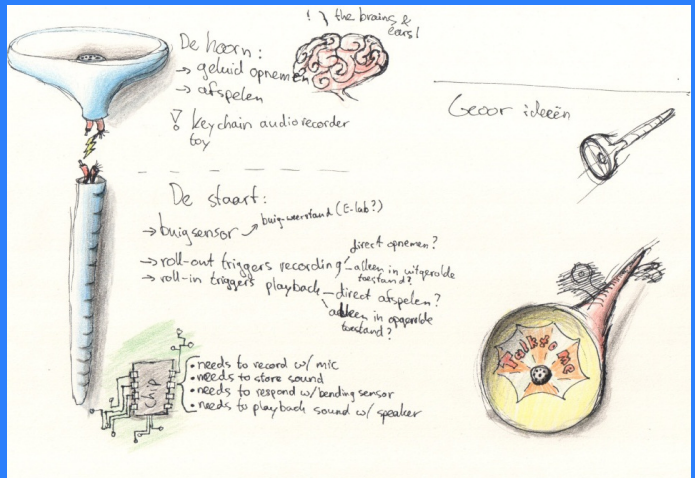 ! } the brains &
ears!
De hoorn:
→ geluid opnemen
→ afspelen
! keychain audiorecorder
toy
De staart:
→ buigsensor → buig-weerstand (E-lab?)
→ roll-out triggers recording
direct opnemen?
alleen in uitgerolde
toestand?
→ roll-in triggers playback
direct afspelen?
alleen in opgerolde
toestand?
Chip
• needs to record w/ mic
• needs to store sound
• needs to respond w/ bending sensor
• needs to playback sound w/ speaker
ideeën
Talk to Me